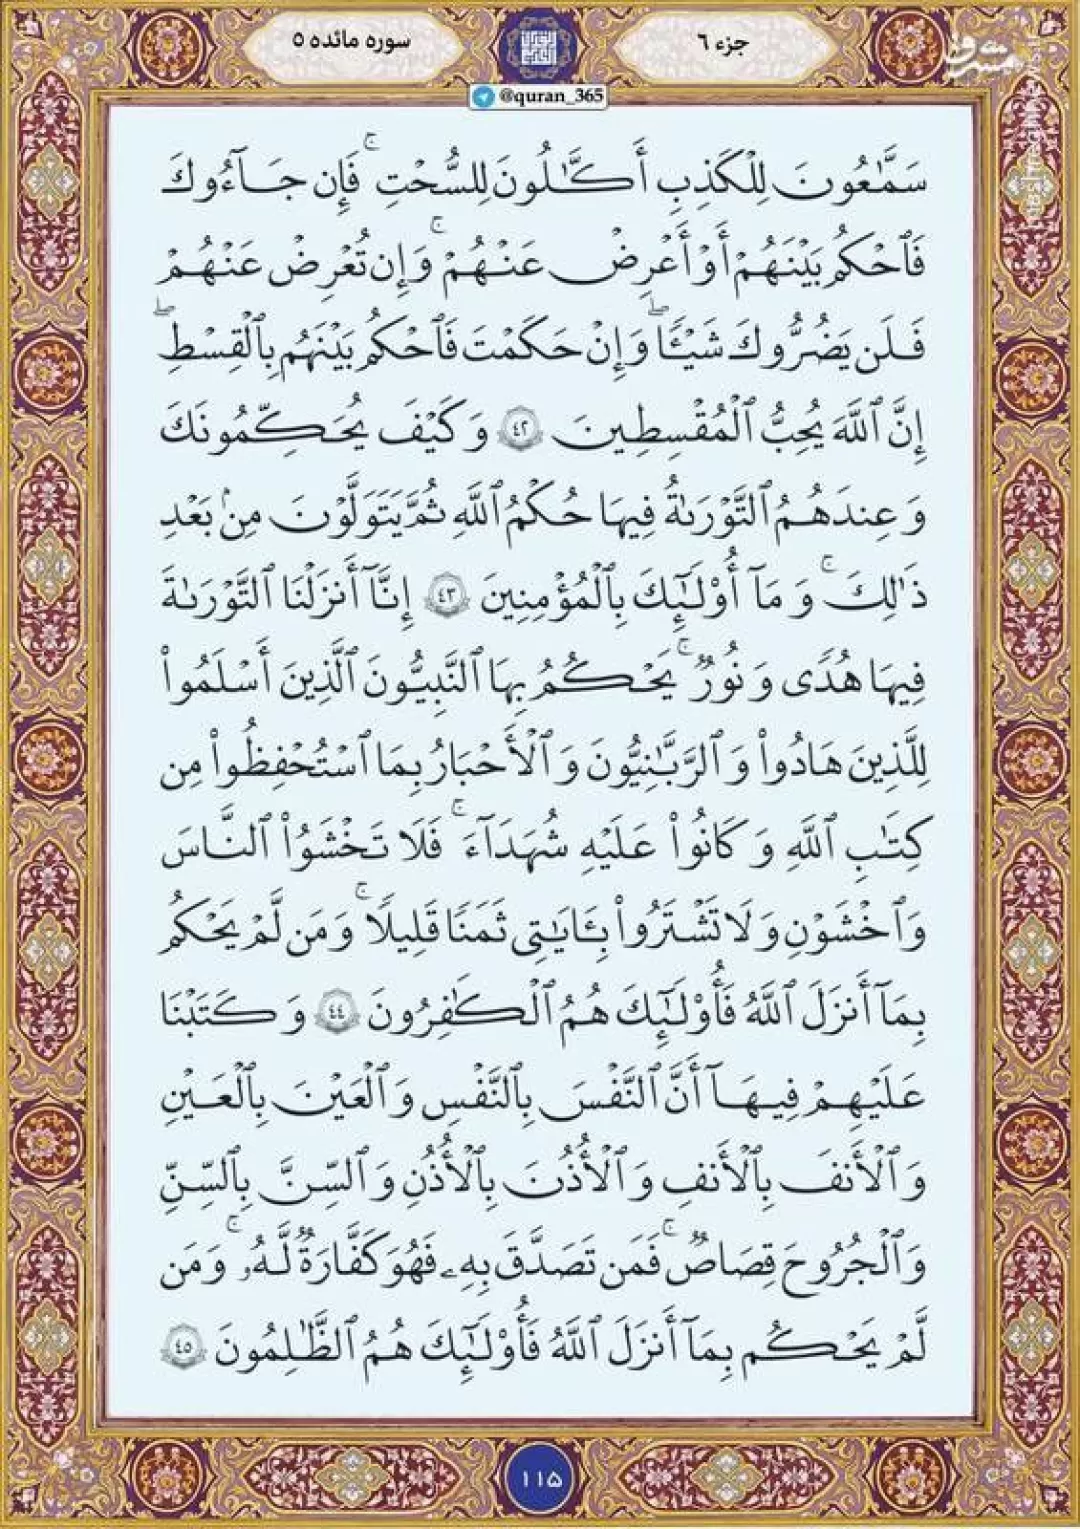 جزء ۶
سوره مائده ۵
مشرق
@quran_365
سَمَّٰعُونَ لِلْكَذِبِ أَكَّٰلُونَ لِلسُّحْتِۚ فَإِن جَآءُوكَ
فَٱحْكُم بَيْنَهُمْ أَوْ أَعْرِضْ عَنْهُمْۚ وَإِن تُعْرِضْ عَنْهُمْ
فَلَن يَضُرُّوكَ شَيْـًٔاۖ وَإِنْ حَكَمْتَ فَٱحْكُم بَيْنَهُم بِٱلْقِسْطِۖ
إِنَّ ٱللَّهَ يُحِبُّ ٱلْمُقْسِطِينَ ٤٢ وَكَيْفَ يُحَكِّمُونَكَ
وَعِندَهُمُ ٱلتَّوْرَىٰةُ فِيهَا حُكْمُ ٱللَّهِ ثُمَّ يَتَوَلَّوْنَ مِنۢ بَعْدِ
ذَٰلِكَۚ وَمَآ أُو۟لَٰٓئِكَ بِٱلْمُؤْمِنِينَ ٤٣ إِنَّآ أَنزَلْنَا ٱلتَّوْرَىٰةَ
فِيهَا هُدًى وَنُورٌۚ يَحْكُمُ بِهَا ٱلنَّبِيُّونَ ٱلَّذِينَ أَسْلَمُوا۟
لِلَّذِينَ هَادُوا۟ وَٱلرَّبَّٰنِيُّونَ وَٱلْأَحْبَارُ بِمَا ٱسْتُحْفِظُوا۟ مِن
كِتَٰبِ ٱللَّهِ وَكَانُوا۟ عَلَيْهِ شُهَدَآءَۚ فَلَا تَخْشَوُا۟ ٱلنَّاسَ
وَٱخْشَوْنِ وَلَا تَشْتَرُوا۟ بِـَٔايَٰتِى ثَمَنًا قَلِيلًاۚ وَمَن لَّمْ يَحْكُم
بِمَآ أَنزَلَ ٱللَّهُ فَأُو۟لَٰٓئِكَ هُمُ ٱلْكَٰفِرُونَ ٤٤ وَكَتَبْنَا
عَلَيْهِمْ فِيهَآ أَنَّ ٱلنَّفْسَ بِٱلنَّفْسِ وَٱلْعَيْنَ بِٱلْعَيْنِ
وَٱلْأَنفَ بِٱلْأَنفِ وَٱلْأُذُنَ بِٱلْأُذُنِ وَٱلسِّنَّ بِٱلسِّنِّ
وَٱلْجُرُوحَ قِصَاصٌۚ فَمَن تَصَدَّقَ بِهِۦ فَهُوَ كَفَّارَةٌ لَّهُۥۚ وَمَن
لَّمْ يَحْكُم بِمَآ أَنزَلَ ٱللَّهُ فَأُو۟لَٰٓئِكَ هُمُ ٱلظَّٰلِمُونَ ٤٥
۱۱۵